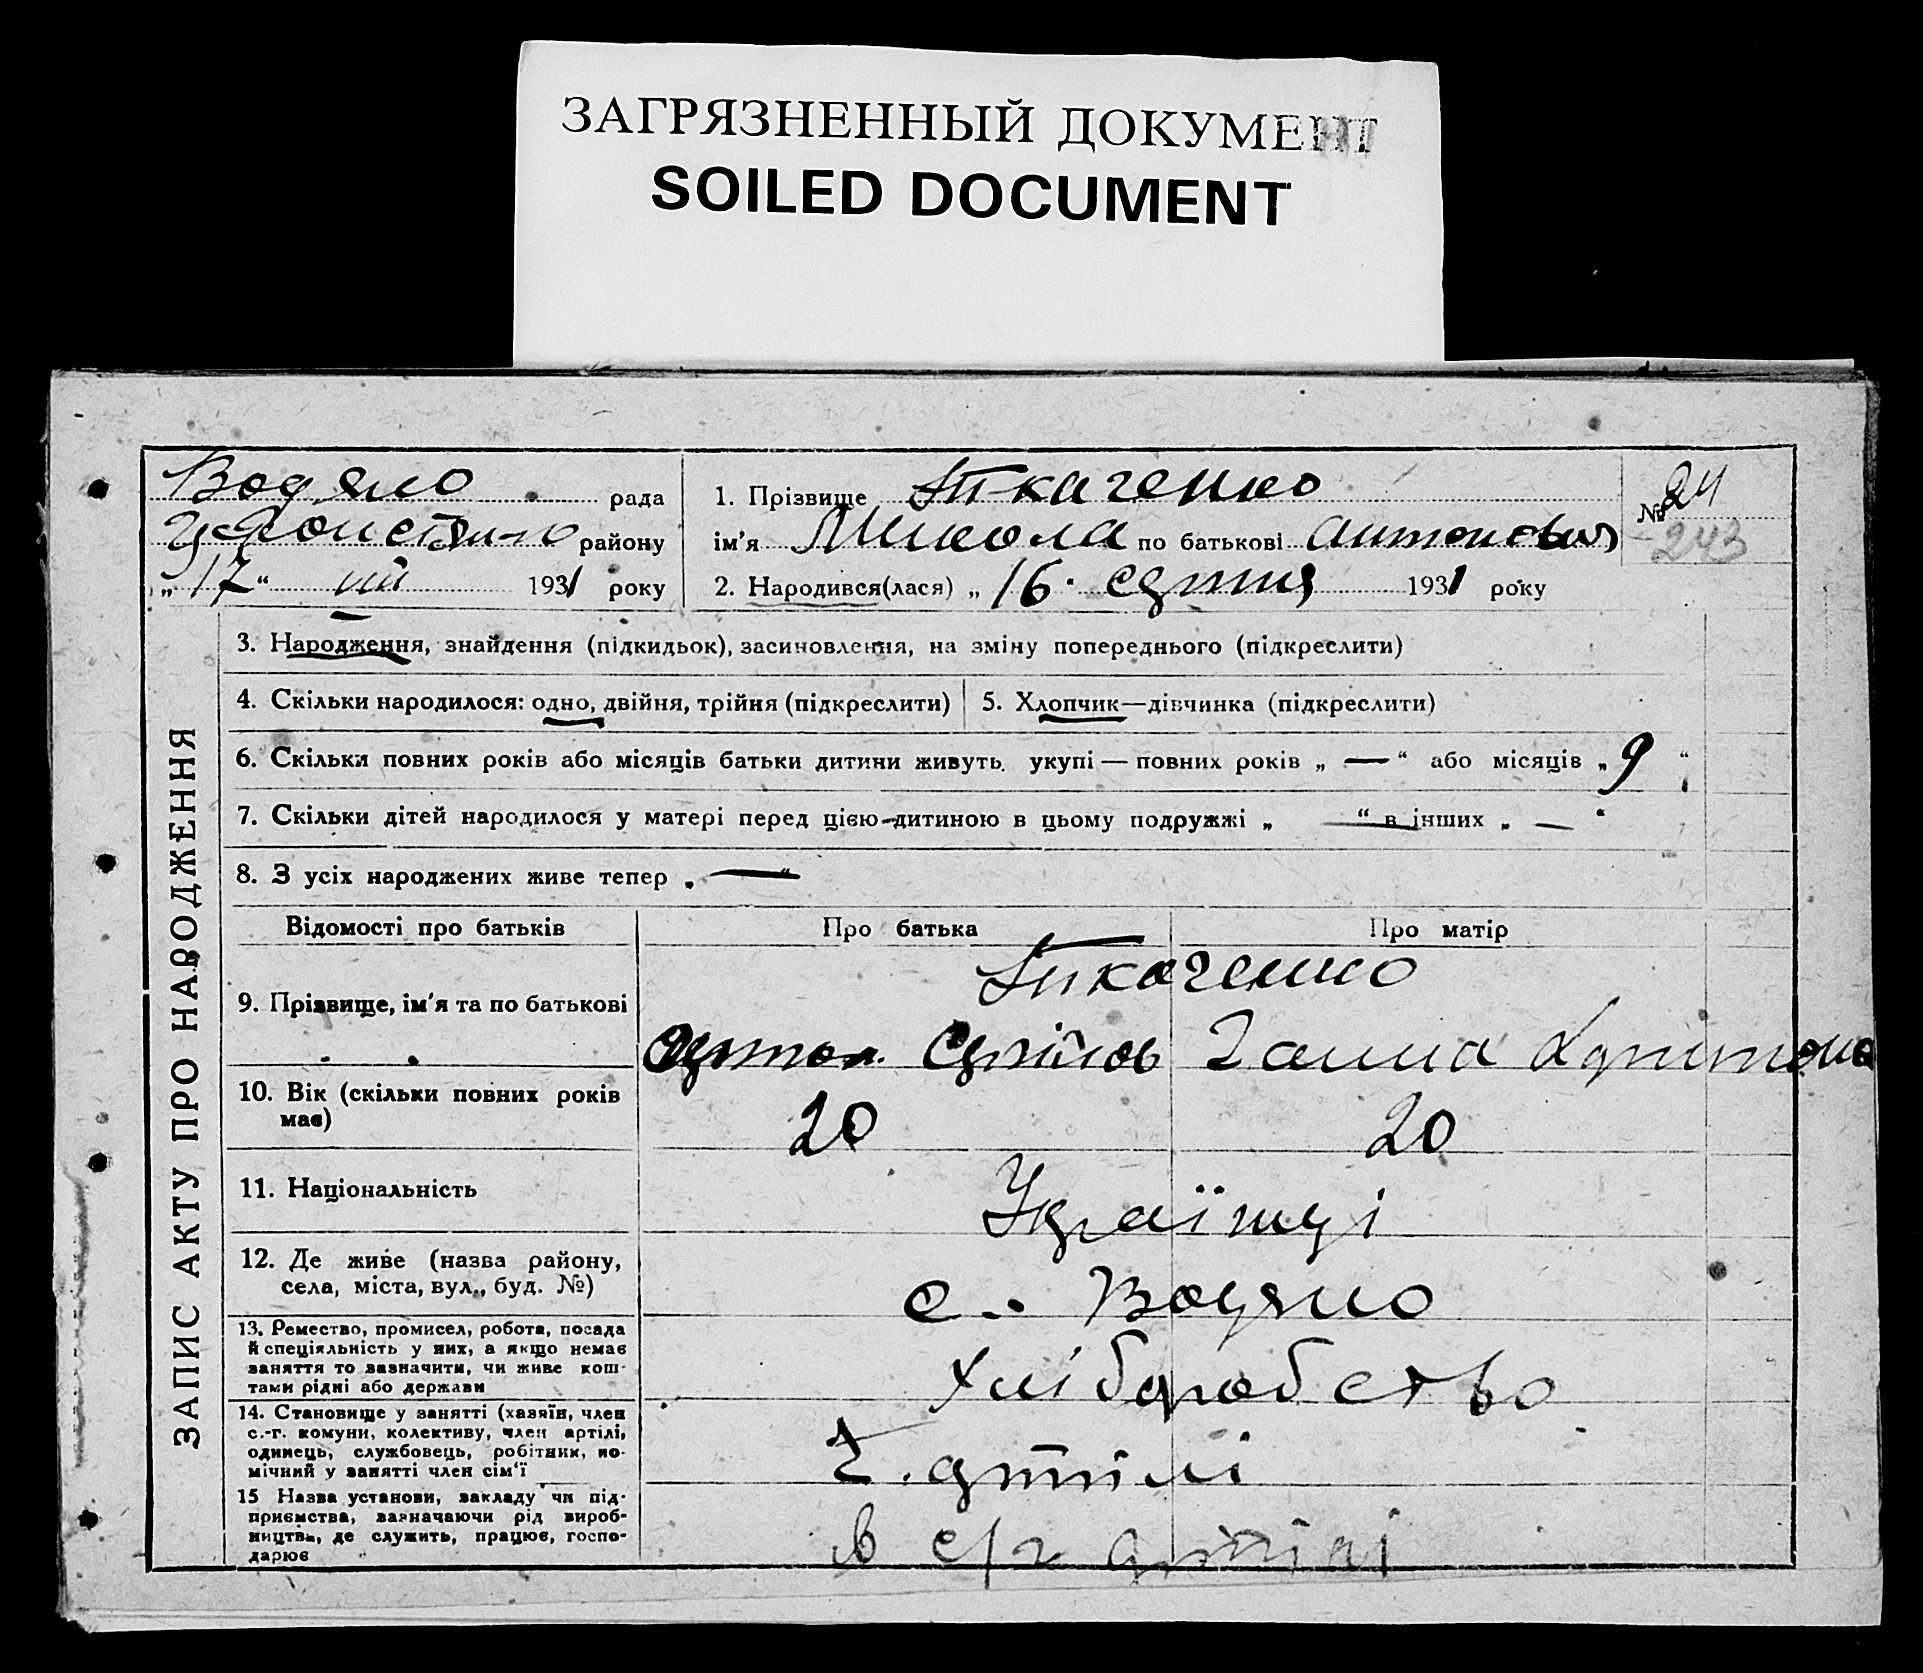 ЗАГРЯЗНЕННЫЙ ДОКУМЕНТ
SOILED DOCUMENT
Водяно рада
району
„17“ VIII 1931 року
1. Прізвище Ткаченко
ім'я Микола по батькові Антонович
2. Народився(лася) „16. 1931 року
№ 24
243
ЗАПИС АКТУ ПРО НАРОДЖЕННЯ
3. Народження, знайдення (підкидьок), засиновлення, на зміну попереднього (підкреслити)
4. Скільки народилося: одно, двійня, трійня (підкреслити)
5. Хлопчик—дівчинка (підкреслити)
6. Скільки повних років або місяців батьки дитини живуть укупі — повних років „ — “ або місяців „ 9 “
7. Скільки дітей народилося у матері перед цією дитиною в цьому подружжі „ — “ в інших „ — “
8. З усіх народжених живе тепер „ — “
Відомості про батьків
Про батька
Про матір
9. Прізвище, ім'я та по батькові
Ткаченко
Антон
Ганна
10. Вік (скільки повних років
має)
20
20
11. Національність
Українці
12. Де живе (назва району,
села, міста, вул., буд. №)
с. Водяно
13. Ремество, промисел, робота, посада
й спеціяльність у них, а якщо немає
заняття то зазначити, чи живе кош-
тами рідні або держави
Хліборобство
14. Становище у занятті (хазяїн, член
с.-г. комуни, колективу, член артілі,
одинець, службовець, робітник, по-
мічний у занятті член сім'ї
Ч. артілі
15 Назва установи, закладу чи під-
приємства, зазначаючи рід вироб-
ництва, де служить, працює, госпо-
дарює
в с/г артілі